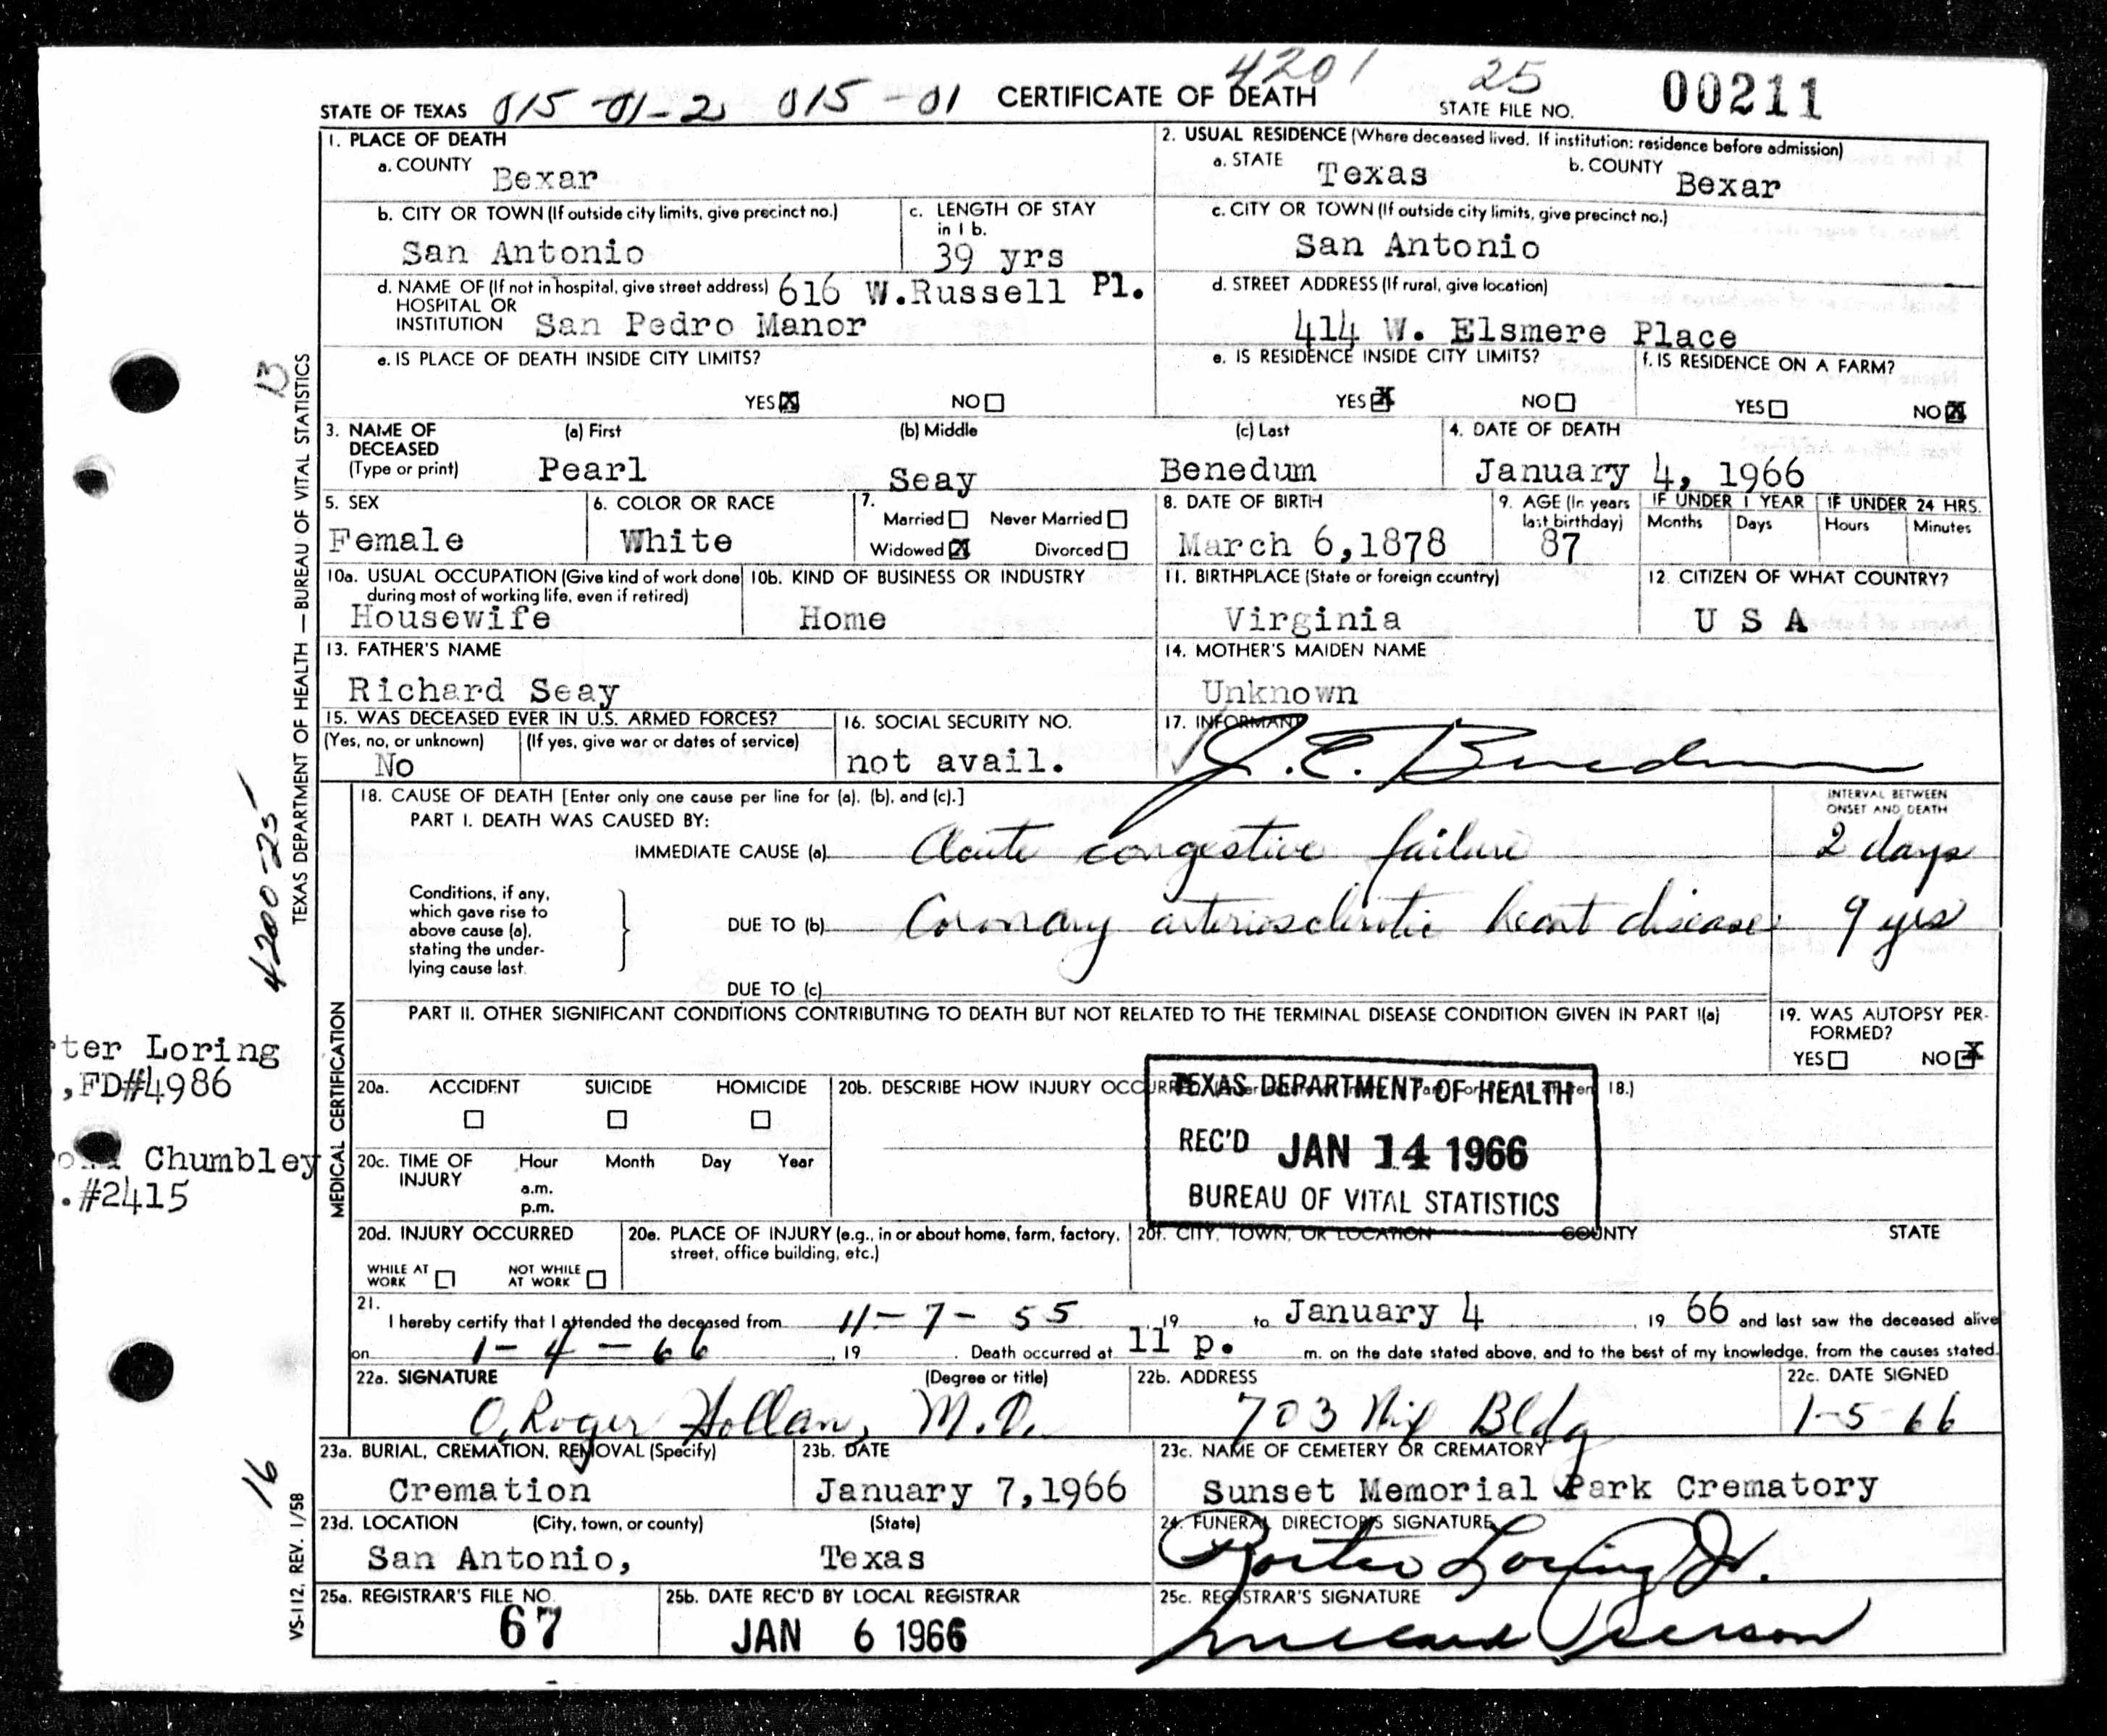 4201 25
STATE OF TEXAS 015-01-2 015-01 CERTIFICATE OF DEATH STATE FILE NO. 00211
1. PLACE OF DEATH
a. COUNTY Bexar
2. USUAL RESIDENCE (Where deceased lived. If institution: residence before admission)
a. STATE Texas b. COUNTY Bexar
b. CITY OR TOWN (If outside city limits, give precinct no.)
San Antonio
c. LENGTH OF STAY in 1 b.
39 yrs
c. CITY OR TOWN (If outside city limits, give precinct no.)
San Antonio
d. NAME OF (If not in hospital, give street address) 616 W.Russell Pl.
HOSPITAL OR
INSTITUTION San Pedro Manor
d. STREET ADDRESS (If rural, give location)
414 W. Elsmere Place
e. IS PLACE OF DEATH INSIDE CITY LIMITS?
YES X NO
e. IS RESIDENCE INSIDE CITY LIMITS?
YES X NO
f. IS RESIDENCE ON A FARM?
YES NO X
3. NAME OF DECEASED (Type or print)
(a) First (b) Middle (c) Last
Pearl Seay Benedum
4. DATE OF DEATH
January 4, 1966
5. SEX
Female
6. COLOR OR RACE
White
7.
Married Never Married
Widowed X Divorced
8. DATE OF BIRTH
March 6,1878
9. AGE (In years last birthday)
87
IF UNDER 1 YEAR
Months Days
IF UNDER 24 HRS.
Hours Minutes
10a. USUAL OCCUPATION (Give kind of work done
during most of working life, even if retired)
Housewife
10b. KIND OF BUSINESS OR INDUSTRY
Home
11. BIRTHPLACE (State or foreign country)
Virginia
12. CITIZEN OF WHAT COUNTRY?
U S A
13. FATHER'S NAME
Richard Seay
14. MOTHER'S MAIDEN NAME
Unknown
15. WAS DECEASED EVER IN U.S. ARMED FORCES?
(Yes, no, or unknown) (If yes, give war or dates of service)
No
16. SOCIAL SECURITY NO.
not avail.
17. INFORMANT
J. E. Benedum
18. CAUSE OF DEATH [Enter only one cause per line for (a), (b), and (c).]
INTERVAL BETWEEN
ONSET AND DEATH
PART I. DEATH WAS CAUSED BY:
IMMEDIATE CAUSE (a) Acute congestive failure 2 days
Conditions, if any,
which gave rise to
above cause (a),
stating the under-
lying cause last.
DUE TO (b) Coronary arteriosclerotic heart disease 9 yrs
DUE TO (c)
PART II. OTHER SIGNIFICANT CONDITIONS CONTRIBUTING TO DEATH BUT NOT RELATED TO THE TERMINAL DISEASE CONDITION GIVEN IN PART I(a)
19. WAS AUTOPSY PER-
FORMED?
YES NO X
20a. ACCIDENT SUICIDE HOMICIDE
20b. DESCRIBE HOW INJURY OCCURRED 18.)
TEXAS DEPARTMENT OF HEALTH
REC'D JAN 14 1966
BUREAU OF VITAL STATISTICS
20c. TIME OF INJURY
Hour Month Day Year
a.m.
p.m.
20d. INJURY OCCURRED
WHILE AT WORK NOT WHILE AT WORK
20e. PLACE OF INJURY (e.g., in or about home, farm, factory,
street, office building, etc.)
20f. CITY, TOWN, OR LOCATION COUNTY STATE
21.
I hereby certify that I attended the deceased from 11-7-55 19 to January 4, 19 66 and last saw the deceased alive
on 1-4-66, 19 . Death occurred at 11 p. m. on the date stated above, and to the best of my knowledge, from the causes stated.
22a. SIGNATURE (Degree or title)
O. Roger Hollan, M.D.
22b. ADDRESS
703 Nix Bldg
22c. DATE SIGNED
1-5-66
23a. BURIAL, CREMATION, REMOVAL (Specify)
Cremation
23b. DATE
January 7,1966
23c. NAME OF CEMETERY OR CREMATORY
Sunset Memorial Park Crematory
23d. LOCATION (City, town, or county) (State)
San Antonio, Texas
24. FUNERAL DIRECTOR'S SIGNATURE
Porter Loring Jr.
25a. REGISTRAR'S FILE NO.
67
25b. DATE REC'D BY LOCAL REGISTRAR
JAN 6 1966
25c. REGISTRAR'S SIGNATURE
13
TEXAS DEPARTMENT OF HEALTH — BUREAU OF VITAL STATISTICS
4200-25
MEDICAL CERTIFICATION
ter Loring
,FD#4986
Chumbley
.#2415
16
VS-112, REV. 1/58